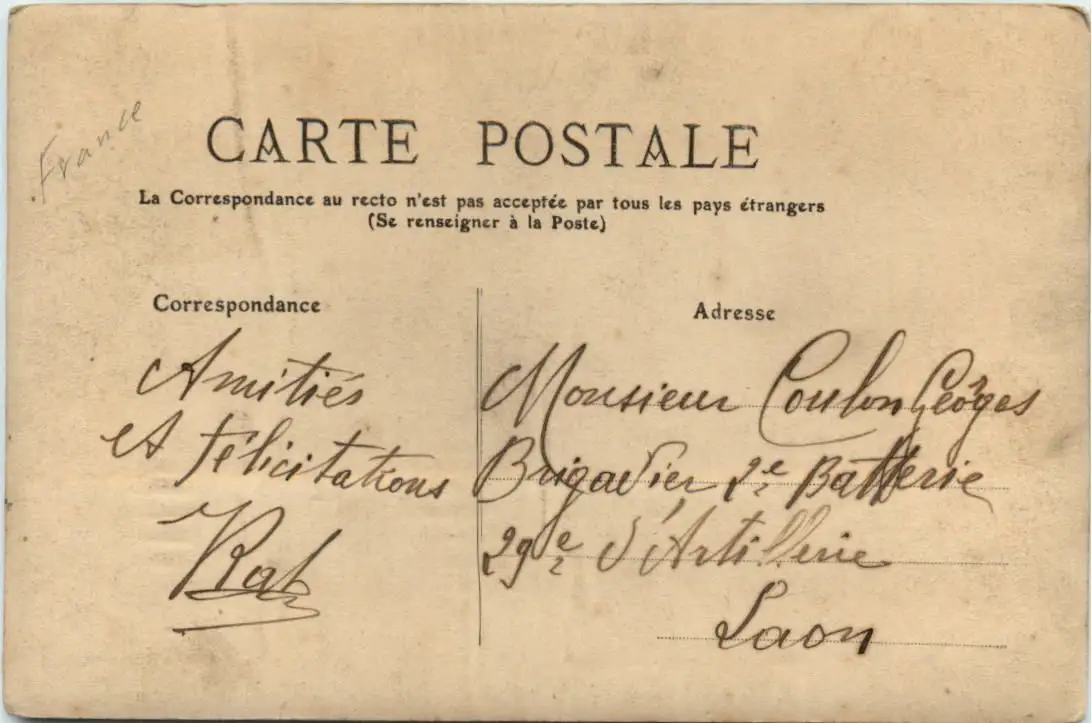 France
CARTE POSTALE
La Correspondance au recto n'est pas acceptée par tous les pays étrangers
(Se renseigner à la Poste)
Correspondance
Amitiés
et Félicitations
Adresse
Monsieur Coulon Geôges
Brigadier 2e Batterie
29e d'Artillerie
Laon